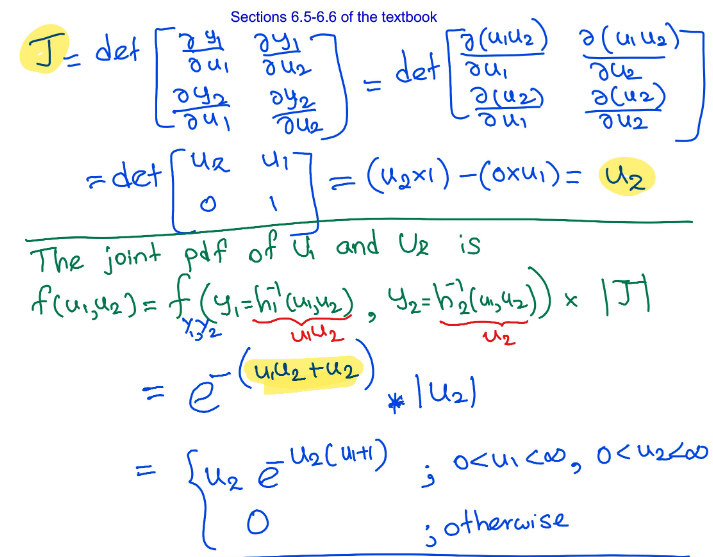 Sections 6.5-6.6 of the textbook
J = det [ ∂y₁/∂u₁ ∂y₁/∂u₂ ; ∂y₂/∂u₁ ∂y₂/∂u₂ ] = det [ ∂(u₁u₂)/∂u₁ ∂(u₁u₂)/∂u₂ ; ∂(u₂)/∂u₁ ∂(u₂)/∂u₂ ]
= det [ u₂ u₁ ; 0 1 ] = (u₂×1) - (0×u₁) = u₂
The joint pdf of U₁ and U₂ is
f(u₁,u₂) = f_{Y₁,Y₂} (y₁=h₁⁻¹(u₁,u₂), y₂=h₂⁻¹(u₁,u₂)) × |J|
u₁u₂ u₂
= e^{-(u₁u₂+u₂)} * |u₂|
= { u₂ e^{-u₂(u₁+1)} ; 0<u₁<∞, 0<u₂<∞
0 ; otherwise